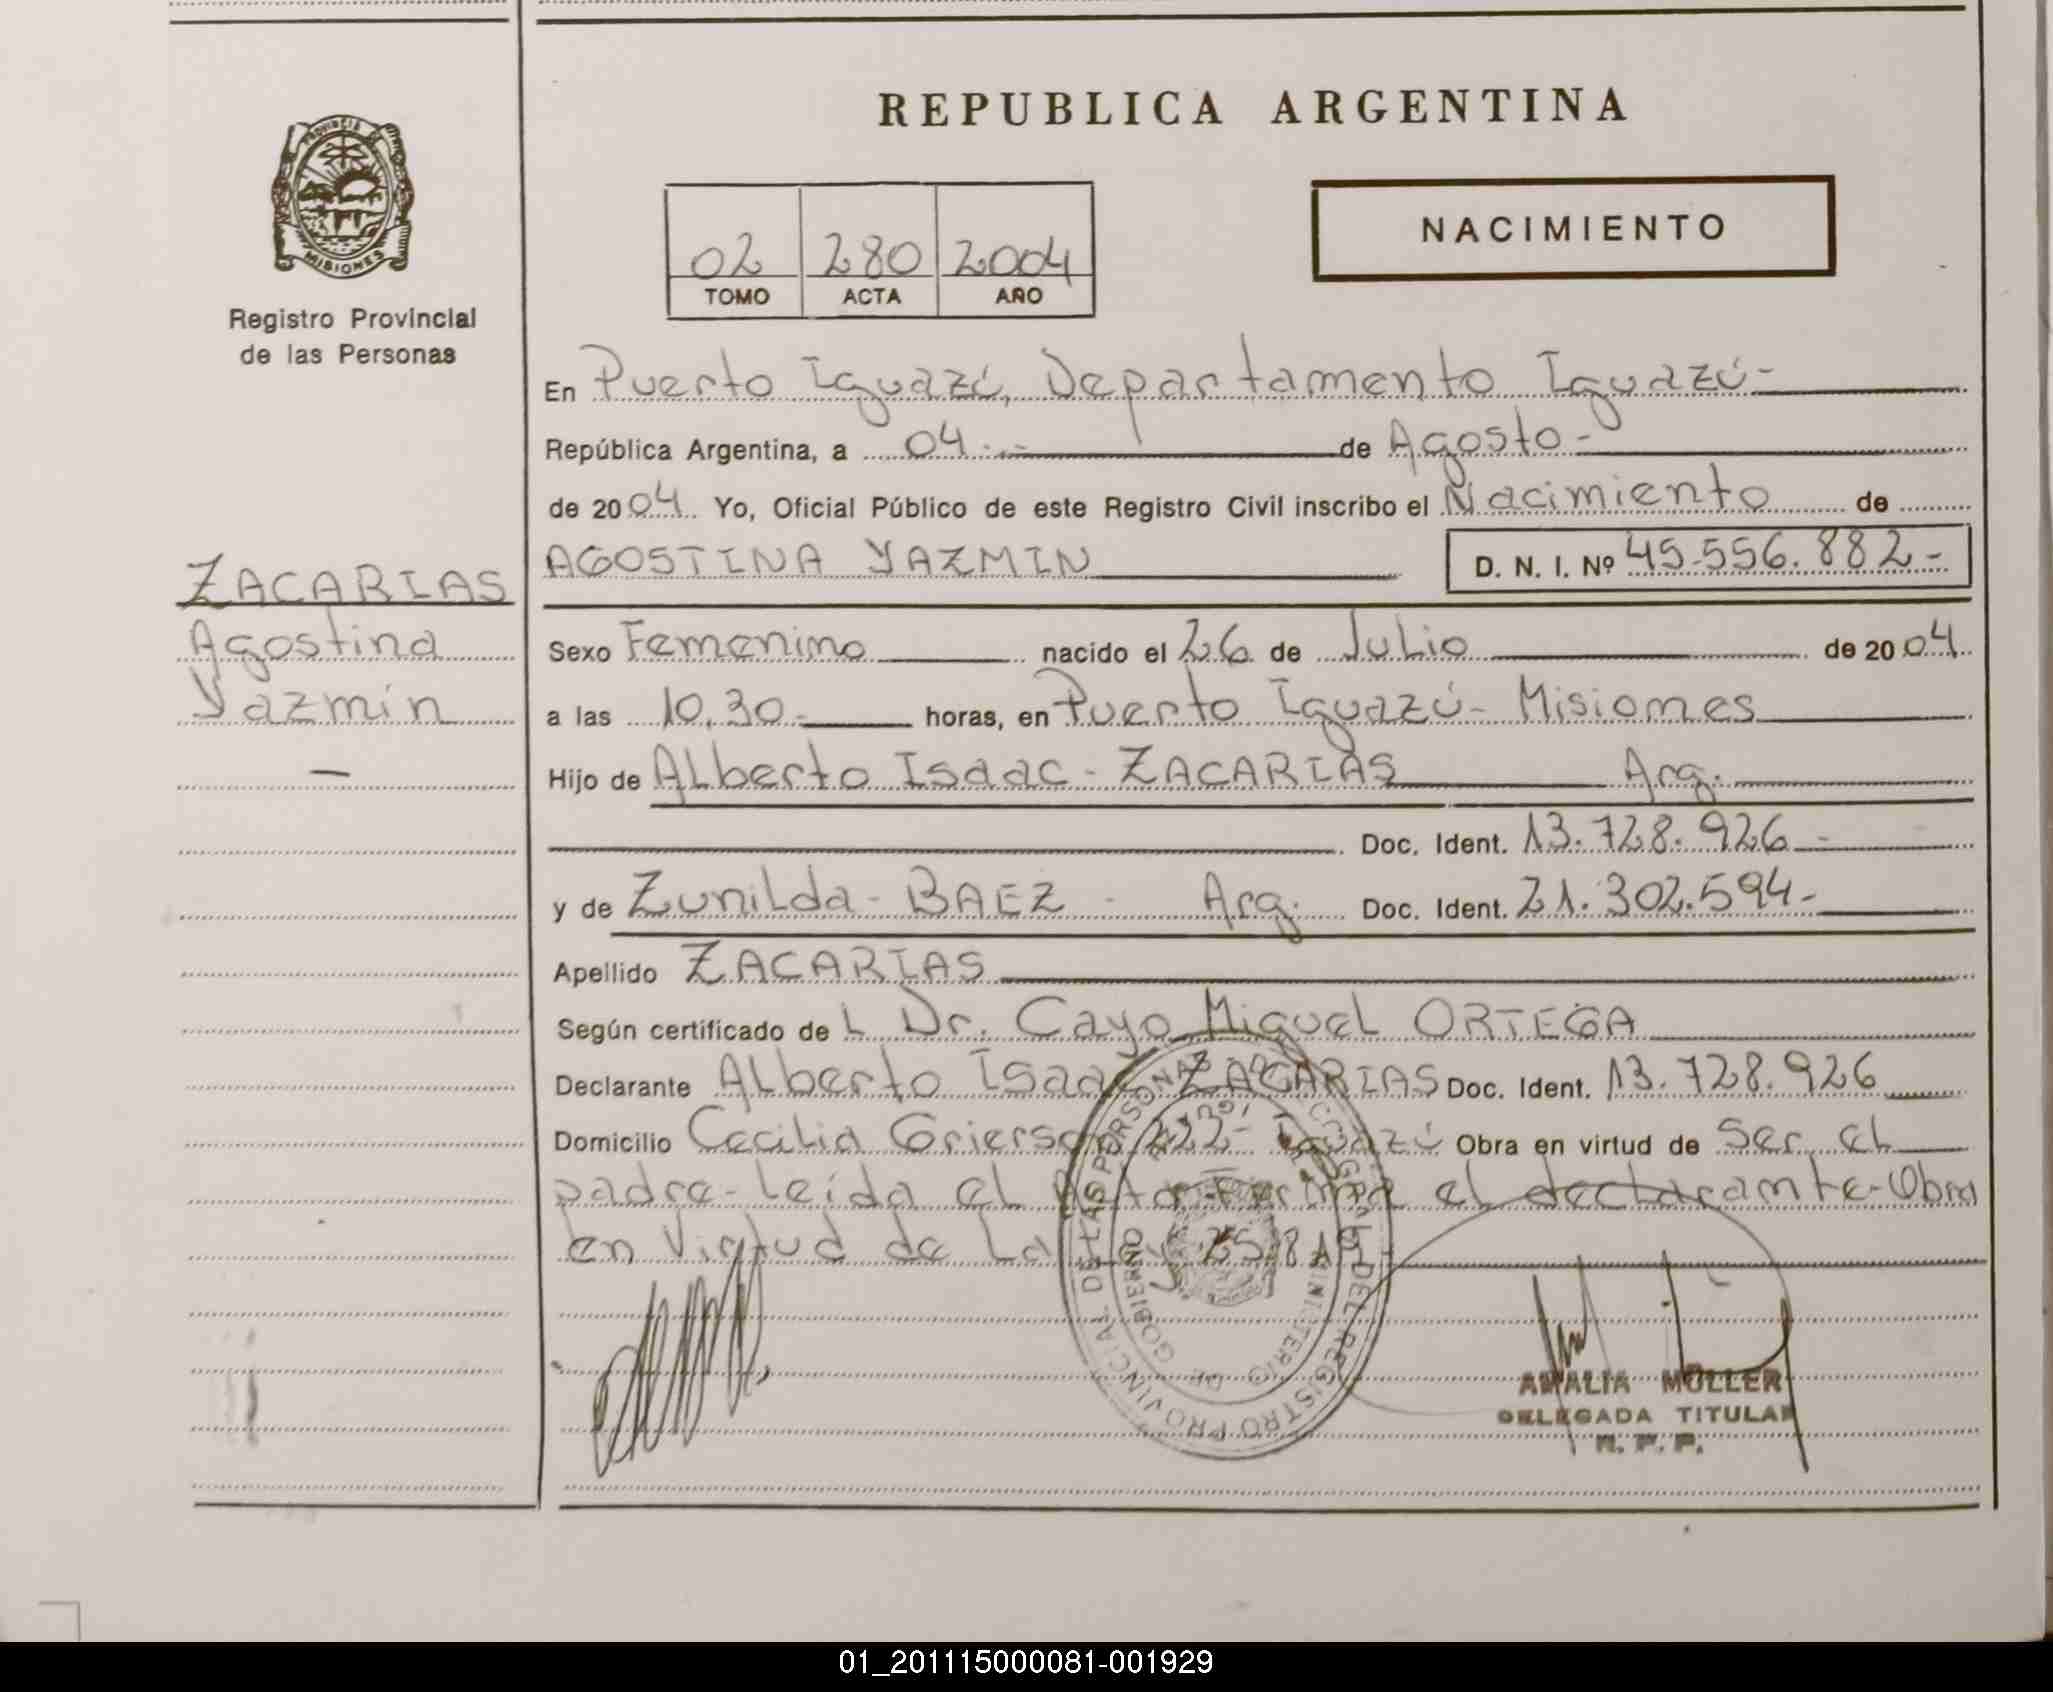 REPUBLICA ARGENTINA
PROVINCIA DE
MISIONES
Registro Provincial
de las Personas
02 280 2004
TOMO ACTA AÑO
NACIMIENTO
En Puerto Iguazú, Departamento Iguazú-
República Argentina, a 04.- de Agosto-
de 2004 Yo, Oficial Público de este Registro Civil inscribo el Nacimiento de
AGOSTINA YAZMIN D. N. I. Nº 45.556.882-
ZACARIAS
Agostina
Yazmin
-
Sexo Femenino nacido el 26 de Julio de 2004
a las 10,30- horas, en Puerto Iguazú- Misiones
Hijo de Alberto Isaac- ZACARIAS Arg.
Doc. Ident. 13.728.926-
y de Zunilda- BAEZ - Arg. Doc. Ident. 21.302.594-
Apellido ZACARIAS
Según certificado de L Dr. Cayo Miguel ORTEGA
Declarante Alberto Isaac ZACARIAS Doc. Ident. 13.728.926
Domicilio Cecilia Grierson 222- Iguazú Obra en virtud de Ser el
padre- Leida el Acta Firma el declarante- Obra
en Virtud de La
REGISTRO PROVINCIAL DE LAS PERSONAS
MINISTERIO DE GOBIERNO
AMALIA MÜLLER
DELEGADA TITULAR
R. P. P.
01_201115000081-001929